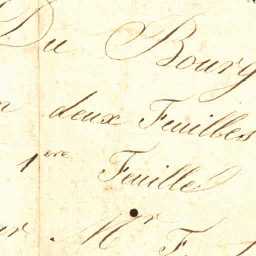 Du Bourg
n deux Feuilles
1ère Feuille
ur Mr F.